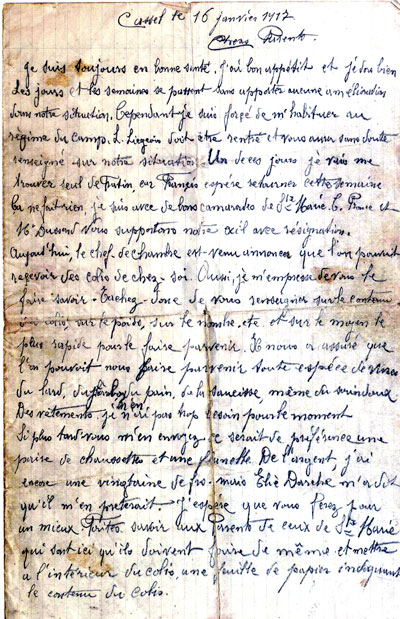 Cassel le 16 janvier 1917
Chers Parents.
Je suis toujours en bonne santé. J'ai bon appétit et je dors bien
Les jours et les semaines se passent sans apporter aucune amélioration
dans notre situation. Cependant je suis forcé de m'habituer au
régime du camp. L. Liegeois doit être rentré et vous aura sans doute
renseigné sur notre situation. Un de ces jours je vais me
trouver seul de Fratin, car François espère retourner cette semaine
Ca ne fait rien, je suis avec de bons camarades de Ste Marie. C. Pierre et
Mr Dussend. Nous supportons notre exil avec résignation.
Aujourd'hui, le chef de chambre est venu annoncer que l'on pourrait
recevoir des colis de chez-soi. Aussi, je m'empresse de vous le
faire savoir. Tachez donc de vous renseigner sur le contenu
du colis, sur le poids, sur le nombre, etc. et sur le moyen le
plus rapide pour le faire parvenir. Il nous a assuré que
l'on pouvait nous faire parvenir toute espèce de vivres
du lard, du jambon, du pain, de la saucisse, même du saindoux
Des vêtements, je n'en ai pas trop besoin pour le moment
Si plus tard vous m'en envoyez ce serait de préférence une
paire de chaussettes et une flanelle. De l'argent, j'ai
encore une vingtaine de frs. mais Elié Darche m'a dit
qu'il m'en prêterait. J'espère que vous ferez pour
un mieux. Faites savoir aux Parents de ceux de Ste Marie
qui sont ici qu'ils doivent faire de même et mettre
à l'intérieur du colis, une feuille de papier indiquant
le contenu du colis.